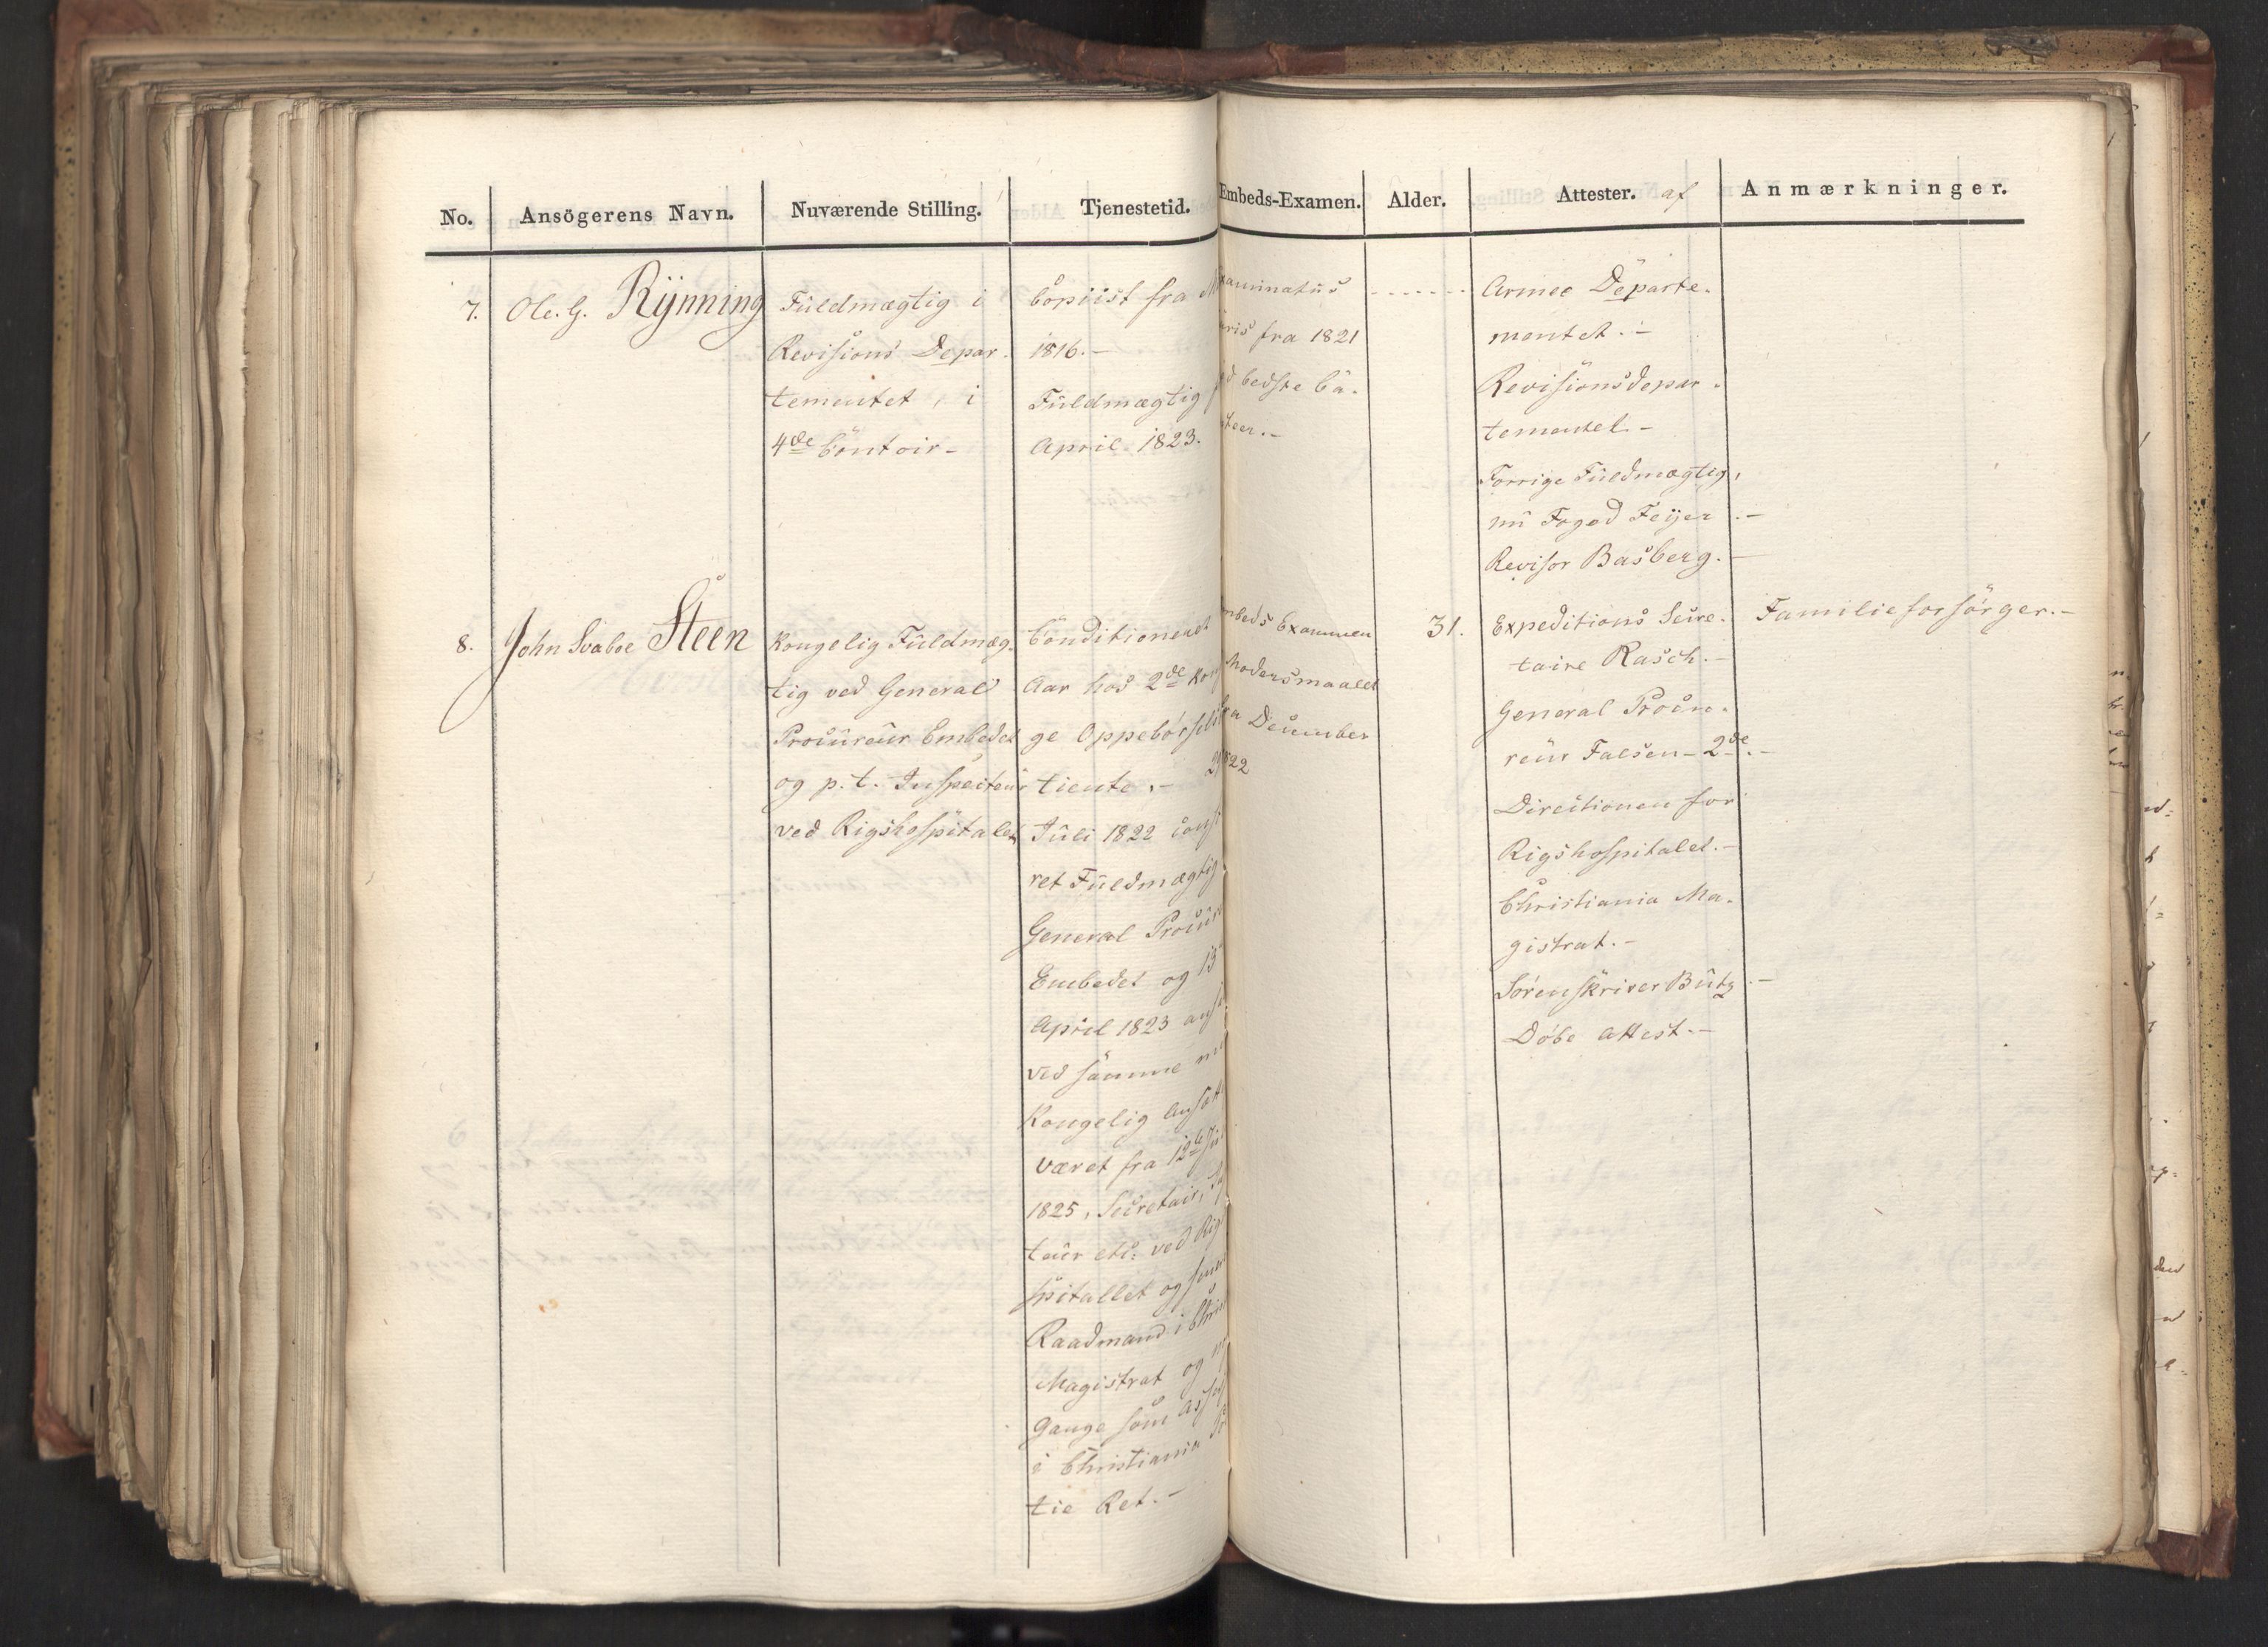 No. Ansögerens Navn. Nuværende Stilling. Tjenestetid. Embeds-Examen. Alder. Attester. af Anmærkninger.
7. Ole. G. Rÿnning
Fuldmægtig i
Revisions Depar-
tementet, i
4de Contoir-
Copiist fra
1816.-
Fuldmægtig
April 1823.
xaminatus
uris fra 1821
bedste Ca-
teer.-
Armee Departe-
mentet.-
Revisionsdepar-
tementet-
Forrige Fuldmægtig,
nu Foged Feÿer.-
Revisor Basberg.-
8. John Svaboe Steen
Kongelig Fuldmæg-
tig ved General
Procureur Embedet
og p. t. Inspecteur
ved Rigshospitalet
Conditioneret
Aar hos 2de
ge Oppebørsels
tiente.-
Juli 1822
ret Fuldmægtig
General
Embedet og 15
April 1823
ved samme
Kongelig
været fra 12te
1825, Secretair,
teur etc. ved
spitallet og
Raadmand i
Magistrat og
Gange som
i Christiania
tie Ret.-
mbeds Examen
Modersmaalet
fra December
1822
31.
Expeditions Secre-
taire Rasch.-
General Procu-
reur Falsen- 2de.-
Directionen for
Rigshospitalet.-
Christiania Ma-
gistrat.-
Sorenskriver Butz.-
Döbe Attest.-
Familieforsörger.-